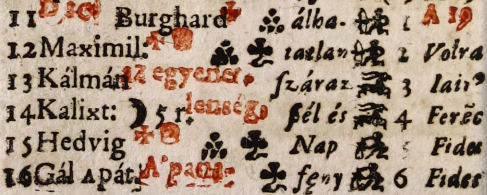 11 Burghard álha- 1 A 19
12 Maximil: tatlan 2 Volra
13 Kálmán az egyenet, száraz 3
14 Kalixt: 5 r. lenség, szél és 4
15 Hedvig Nap 5 Fides
16 Gál Apát. A' pana= fény 6 Fides